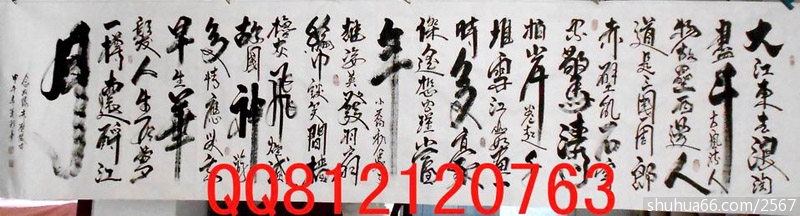 大江東去浪淘
盡千古風流人
物故壘西邊人
道是三國周郎
赤壁亂石穿
空驚濤
拍岸卷起千
堆雪江山如畫一
時多少豪
傑遙想公瑾當
年小喬初嫁了
雄姿英發羽扇
綸巾談笑間檣
櫓灰飛煙滅
故國神遊
多情應笑我
早生華
髮人生如夢
一樽還酹江
月
QQ812120763
shuhua66.com/2567